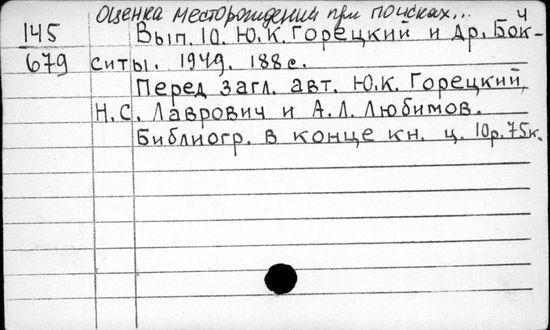 Оценка месторождений при поисках... 4
145 Вып. 10. Ю.К. Горецкий и др. Бок-
679 ситы. 1949. 188 с.
Перед загл. авт. Ю.К. Горецкий,
Н.С. Лаврович и А.Л. Любимов.
Библиогр. в конце кн. ц. 10р. 75к.